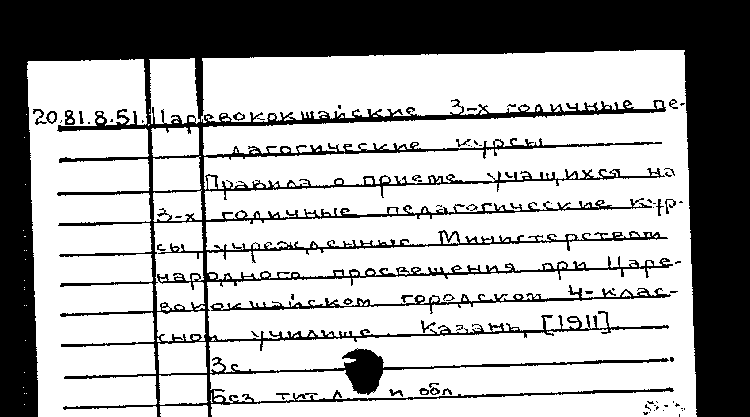 20.81.8.51. Царевококшайские 3-х годичные пе-
дагогические курсы
Правила о приеме учащихся на
3-х годичные педагогические кур-
сы, учрежденные Министерством
народного просвещения при Царе-
вококшайском городском 4-клас-
сном училище. Казань, [1911]
3с.
Без тит. л. и обл.